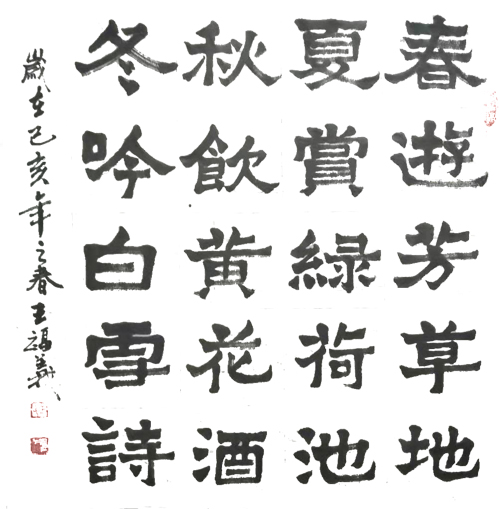 春遊芳草地
夏賞綠荷池
秋飲黃花酒
冬吟白雪詩
歲在己亥年之春王福義